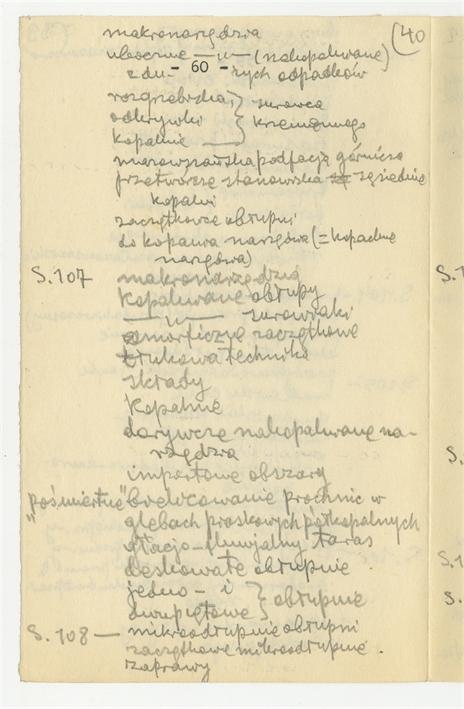 (40
makronarzędzia
wtocznie —„— (nakopalniane)
z du- - 60 - zych odpadków
rozgrzebiska
odkrywki } surowca krzemiennego
kopalnie
mazowszańska podfacja górnicza
przetwórcze stanowiska sąsiednie
kopalni
zaczątkowe obłupni
do kopania narzędzia (= kopalne
narzędzia)
S. 107 makronarzędzia
kopalniane obłupy
—„— surowiaki
amorficzne zaczątkowe
łukowa technika
składy
kopalnie
dorywcze nakopalniane na-
rzędzia
importowe obszary
"pośmiertne" brelcowanie próchnic w
glebach piaskowych półkopalnych
glacjo-fluwjalny taras
deskowate obłupnie
jedno- i } obłupnie
dwupiętowe
S. 108 — mikroodłupnie obłupni
zaczątkowe mikroodłupnie.
zaprawy
S. 1
S.
S. 1
S.